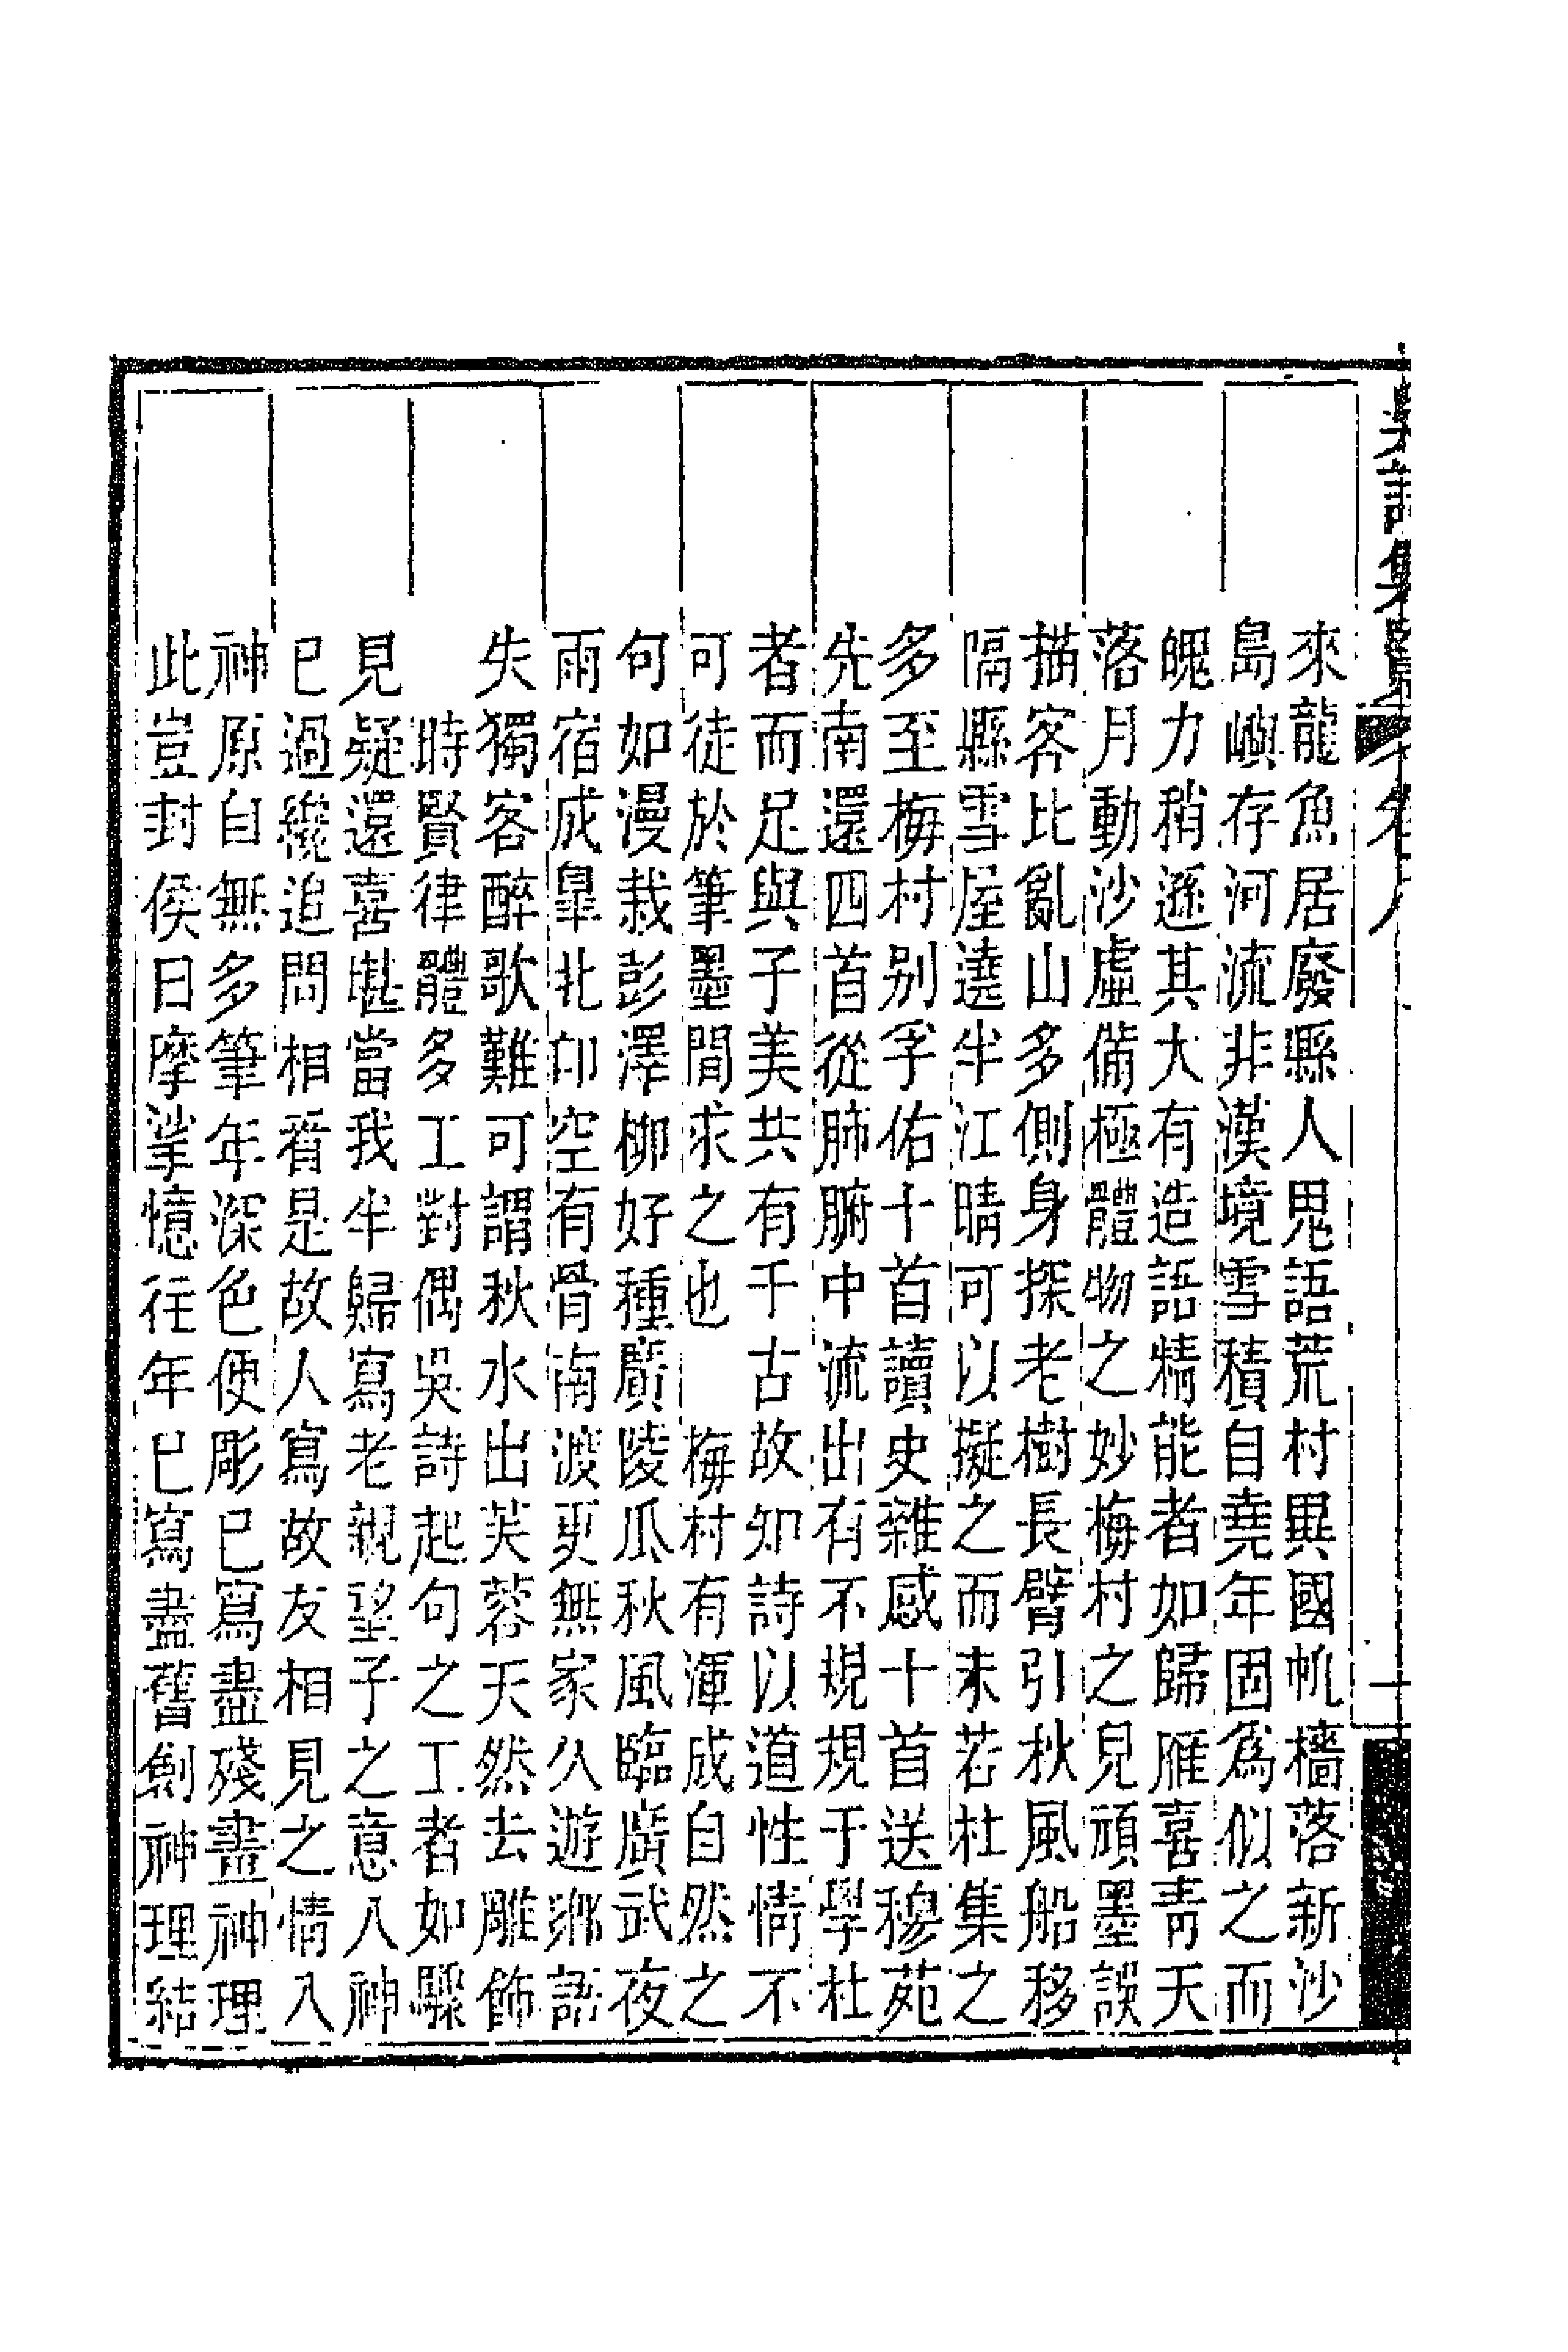 吳詩集覽 卷
來龍魚居廢縣人鬼語荒村異國帆檣落新沙
島嶼存河流非漢境雪積自堯年固爲似之而
魄力稍遜其大有造語精能者如歸雁喜青天
落月動沙虛備極體物之妙梅村之見頑墨誤
描客比亂山多側身探老樹長臂引秋風船移
隔縣雪屋遶半江晴可以擬之而未若杜集之
多至梅村别孚佑十首讀史雜感十首送穆苑
先南還四首從肺腑中流出有不規規于學杜
者而足與子美共有千古故知詩以道性情不
可徒於筆墨間求之也　梅村有渾成自然之
句如漫栽彭澤柳好種廣陵瓜秋風臨廣武夜
雨宿成臯北邙空有骨南渡更無家久遊鄉語
失獨客醉歌難可謂秋水出芙蓉天然去雕飾
時賢律體多工對偶吳詩起句之工者如驟
見疑還喜堪當我半歸寫老親望子之意入神
已過纔追問相看是故人寫故友相見之情入
神原自無多筆年深色便彫已寫盡殘畫神理
此豈封侯日摩挲憶往年已寫盡舊劍神理結